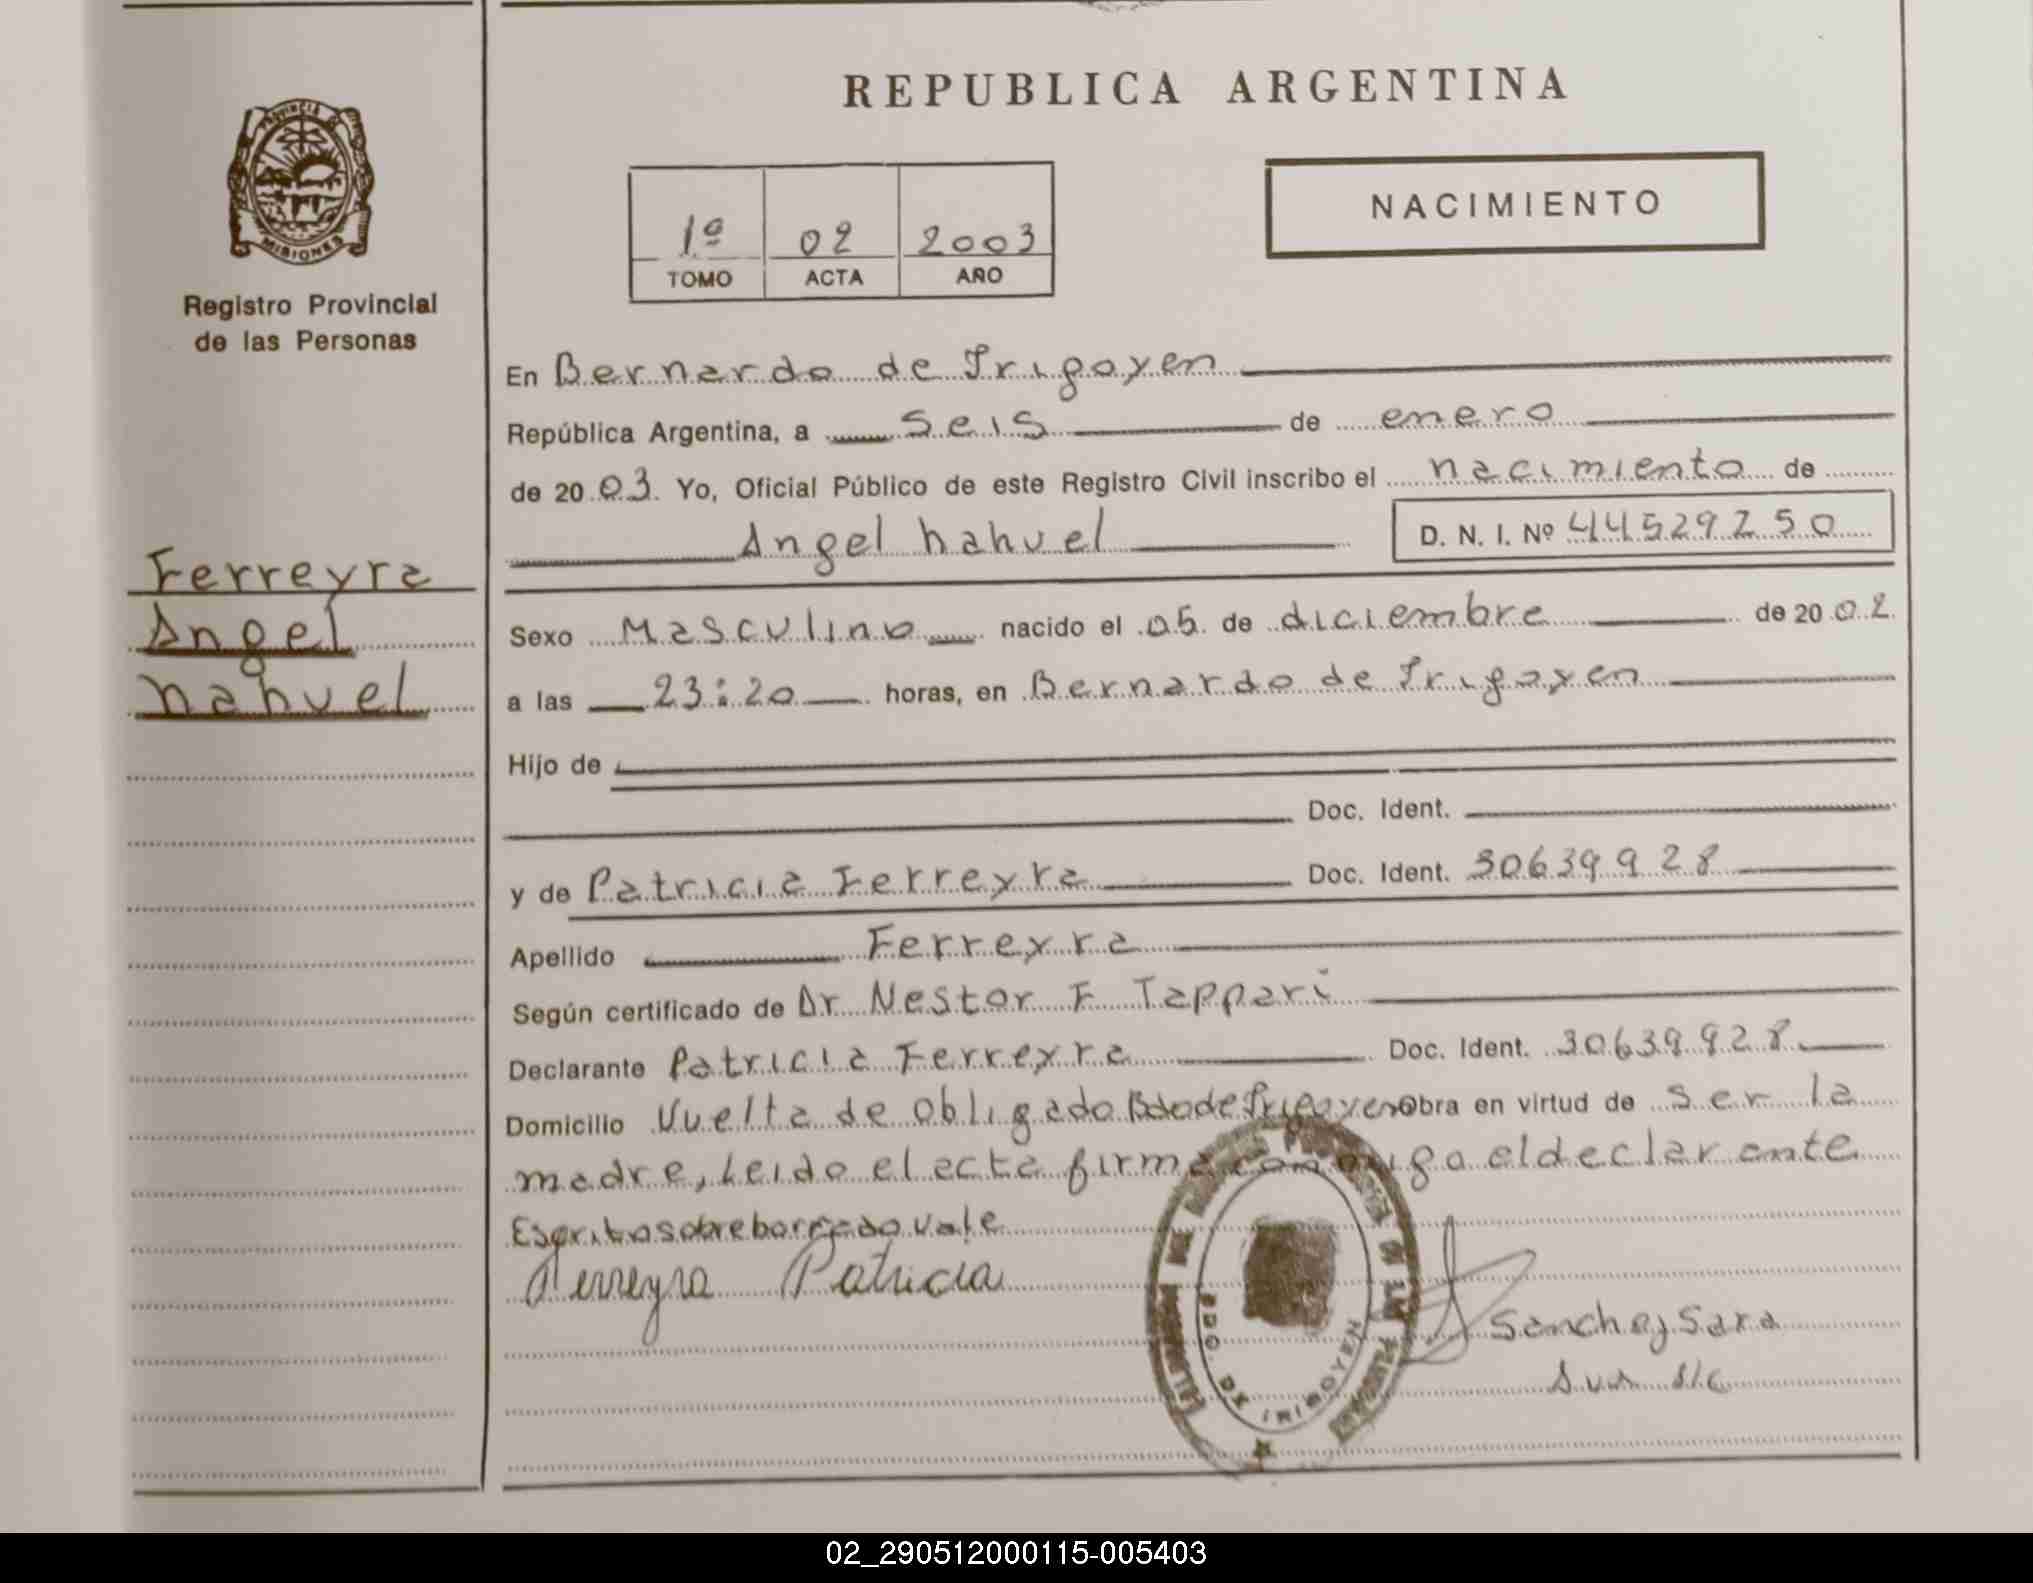 REPUBLICA ARGENTINA
PROVINCIA DE
MISIONES
Registro Provincial
de las Personas
1º 02 2003
TOMO ACTA AÑO
NACIMIENTO
En Bernardo de Irigoyen
República Argentina, a seis de enero
de 2003. Yo, Oficial Público de este Registro Civil inscribo el nacimiento de
Angel nahuel D. N. I. Nº 44529250
Ferreyra
Angel
nahuel
Sexo Masculino nacido el 05 de diciembre de 2002
a las 23:20 horas, en Bernardo de Irigoyen
Hijo de
Doc. Ident.
y de Patricia Ferreyra Doc. Ident. 30639928
Apellido Ferreyra
Según certificado de Dr Nestor F Tappari
Declarante Patricia Ferreyra Doc. Ident. 30639928
Domicilio Vuelta de Obligado Bdo de Irigoyen Obra en virtud de ser la
madre, Leido el acta firma conmigo el declarante
Escrito sobre borrado vale
Ferreyra Patricia
BDO. DE IRIGOYEN
Sanchez Sara
02_290512000115-005403